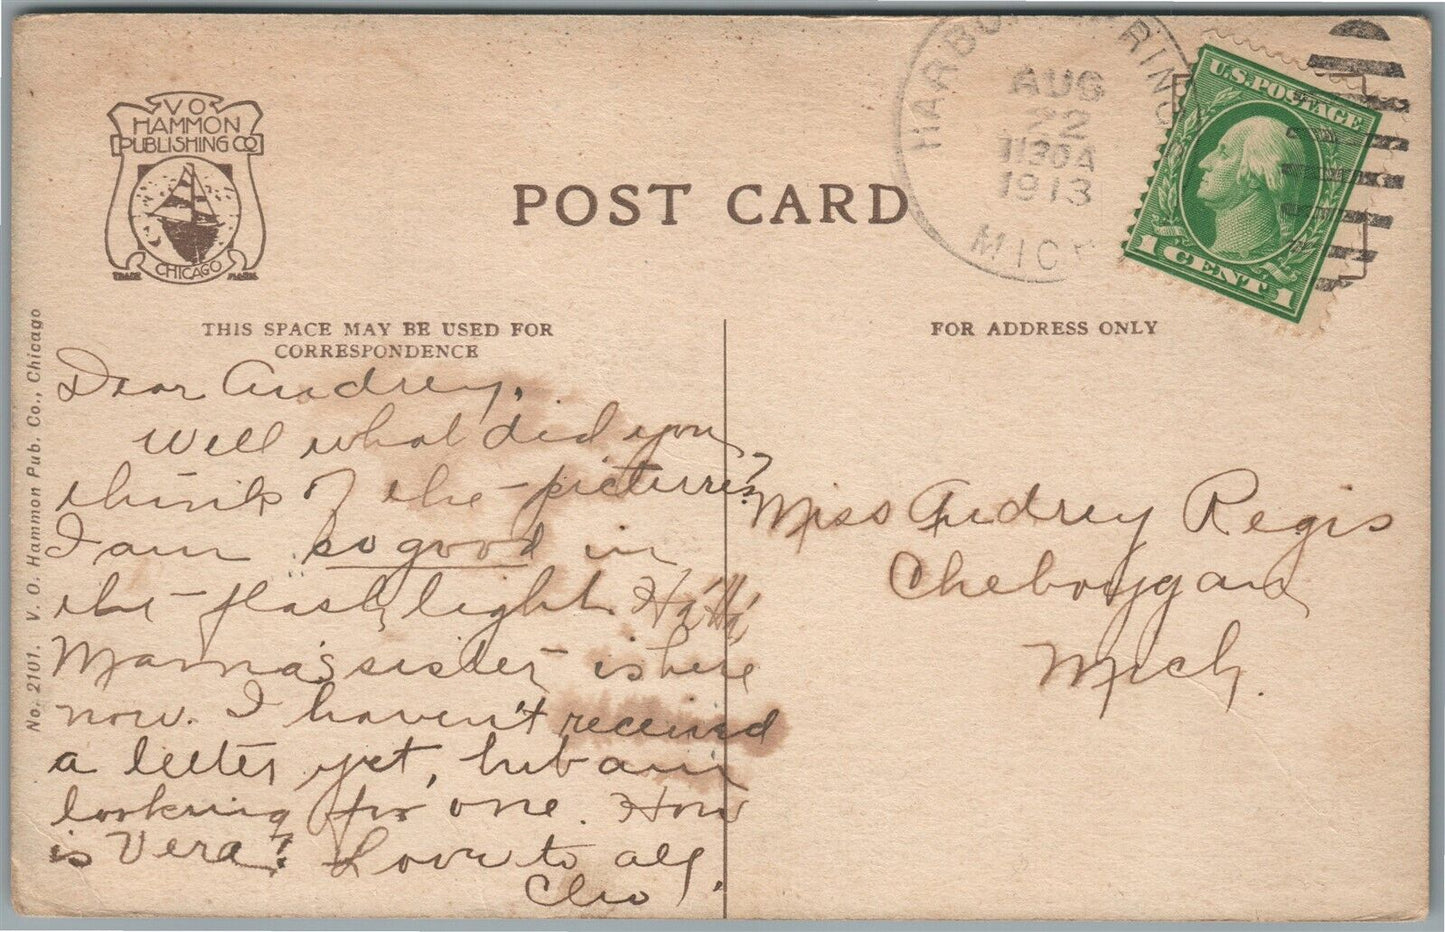 V O
HAMMON
PUBLISHING CO
CHICAGO
TRADE MARK
POST CARD
HARBOR SPRINGS
AUG
22
1130A
1913
MICH
U.S. POSTAGE
1 CENT 1
THIS SPACE MAY BE USED FOR
CORRESPONDENCE
FOR ADDRESS ONLY
No. 2101. V. O. Hammon Pub. Co., Chicago
Dear Audrey,
Well what did you
think of the pictures?
I am so good in
the flash light Ha! Ha!
Mama's sister is here
now. I haven't received
a letter yet, but am
looking for one. How
is Vera? Love to all,
Cleo
Miss Audrey Regis
Cheboygan
Mich.